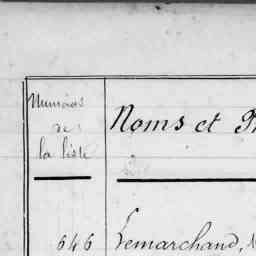 Numéros
de
la liste
Noms et P
646 Lemarchand,